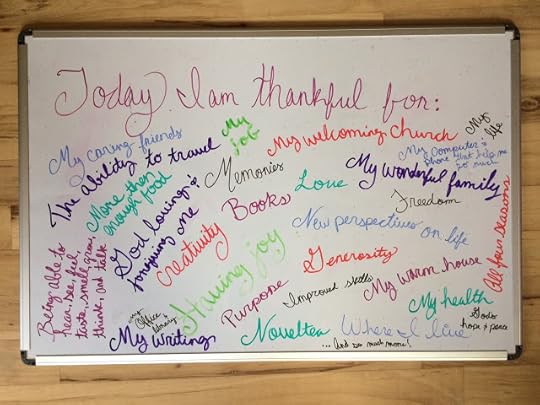 Today I am thankful for:
My caring friends
My
job
My welcoming church
My
life
The Ability to travel
My Computer &
phone that help me
so much
More than
enough food
Memories
My wonderful family
God loving &
forgiving me
Love
Freedom
Books
All four seasons
creativity
New perspectives on life
Being able to
hear, see, feel
taste, smell, grow,
think, and talk
Having joy
Generosity
My warm house
Purpose
Improved skills
My health
my
office
library
God's
hope & peace
My writing
Noveltea
Where I live
... And so much more!